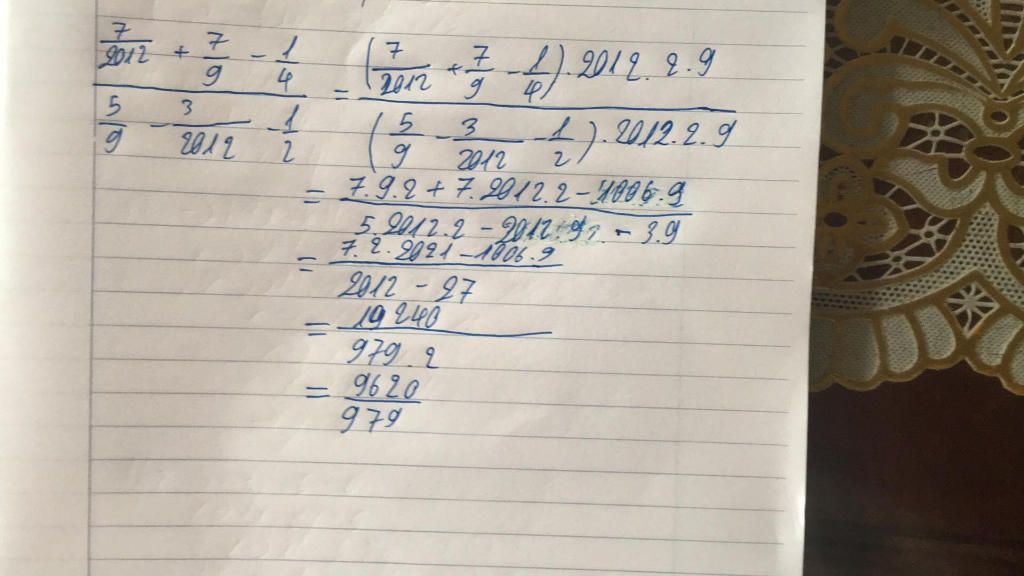 7/2012 + 7/9 - 1/4 / 5/9 - 3/2012 - 1/2 = (7/2012 + 7/9 - 1/4).2012.2.9 / (5/9 - 3/2012 - 1/2).2012.2.9
= 7.9.2 + 7.2012.2 - 1006.9 / 5.2012.2 - 2012.9 - 3.9
= 7.2.2021 - 1006.9 / 2012 - 27
= 19240 / 979.2
= 9620 / 979